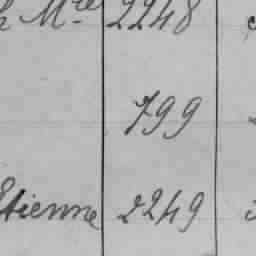 Mlle 2248
799
Etienne 2249